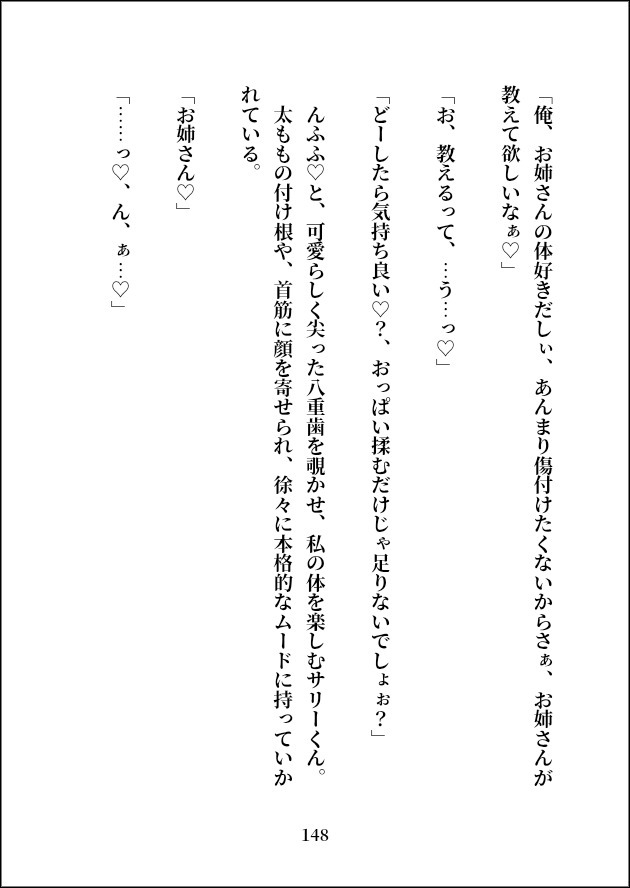 「俺、お姉さんの体好きだしぃ、あんまり傷付けたくないからさぁ、お姉さんが
教えて欲しいなぁ♡」
「お、教えるって、…う…っ♡」
「どーしたら気持ち良い♡？、おっぱい揉むだけじゃ足りないでしょぉ？」
んふふ♡と、可愛らしく尖った八重歯を覗かせ、私の体を楽しむサリーくん。
太ももの付け根や、首筋に顔を寄せられ、徐々に本格的なムードに持っていか
れている。
「お姉さん♡」
「……っ♡、ん、ぁ…♡」
148